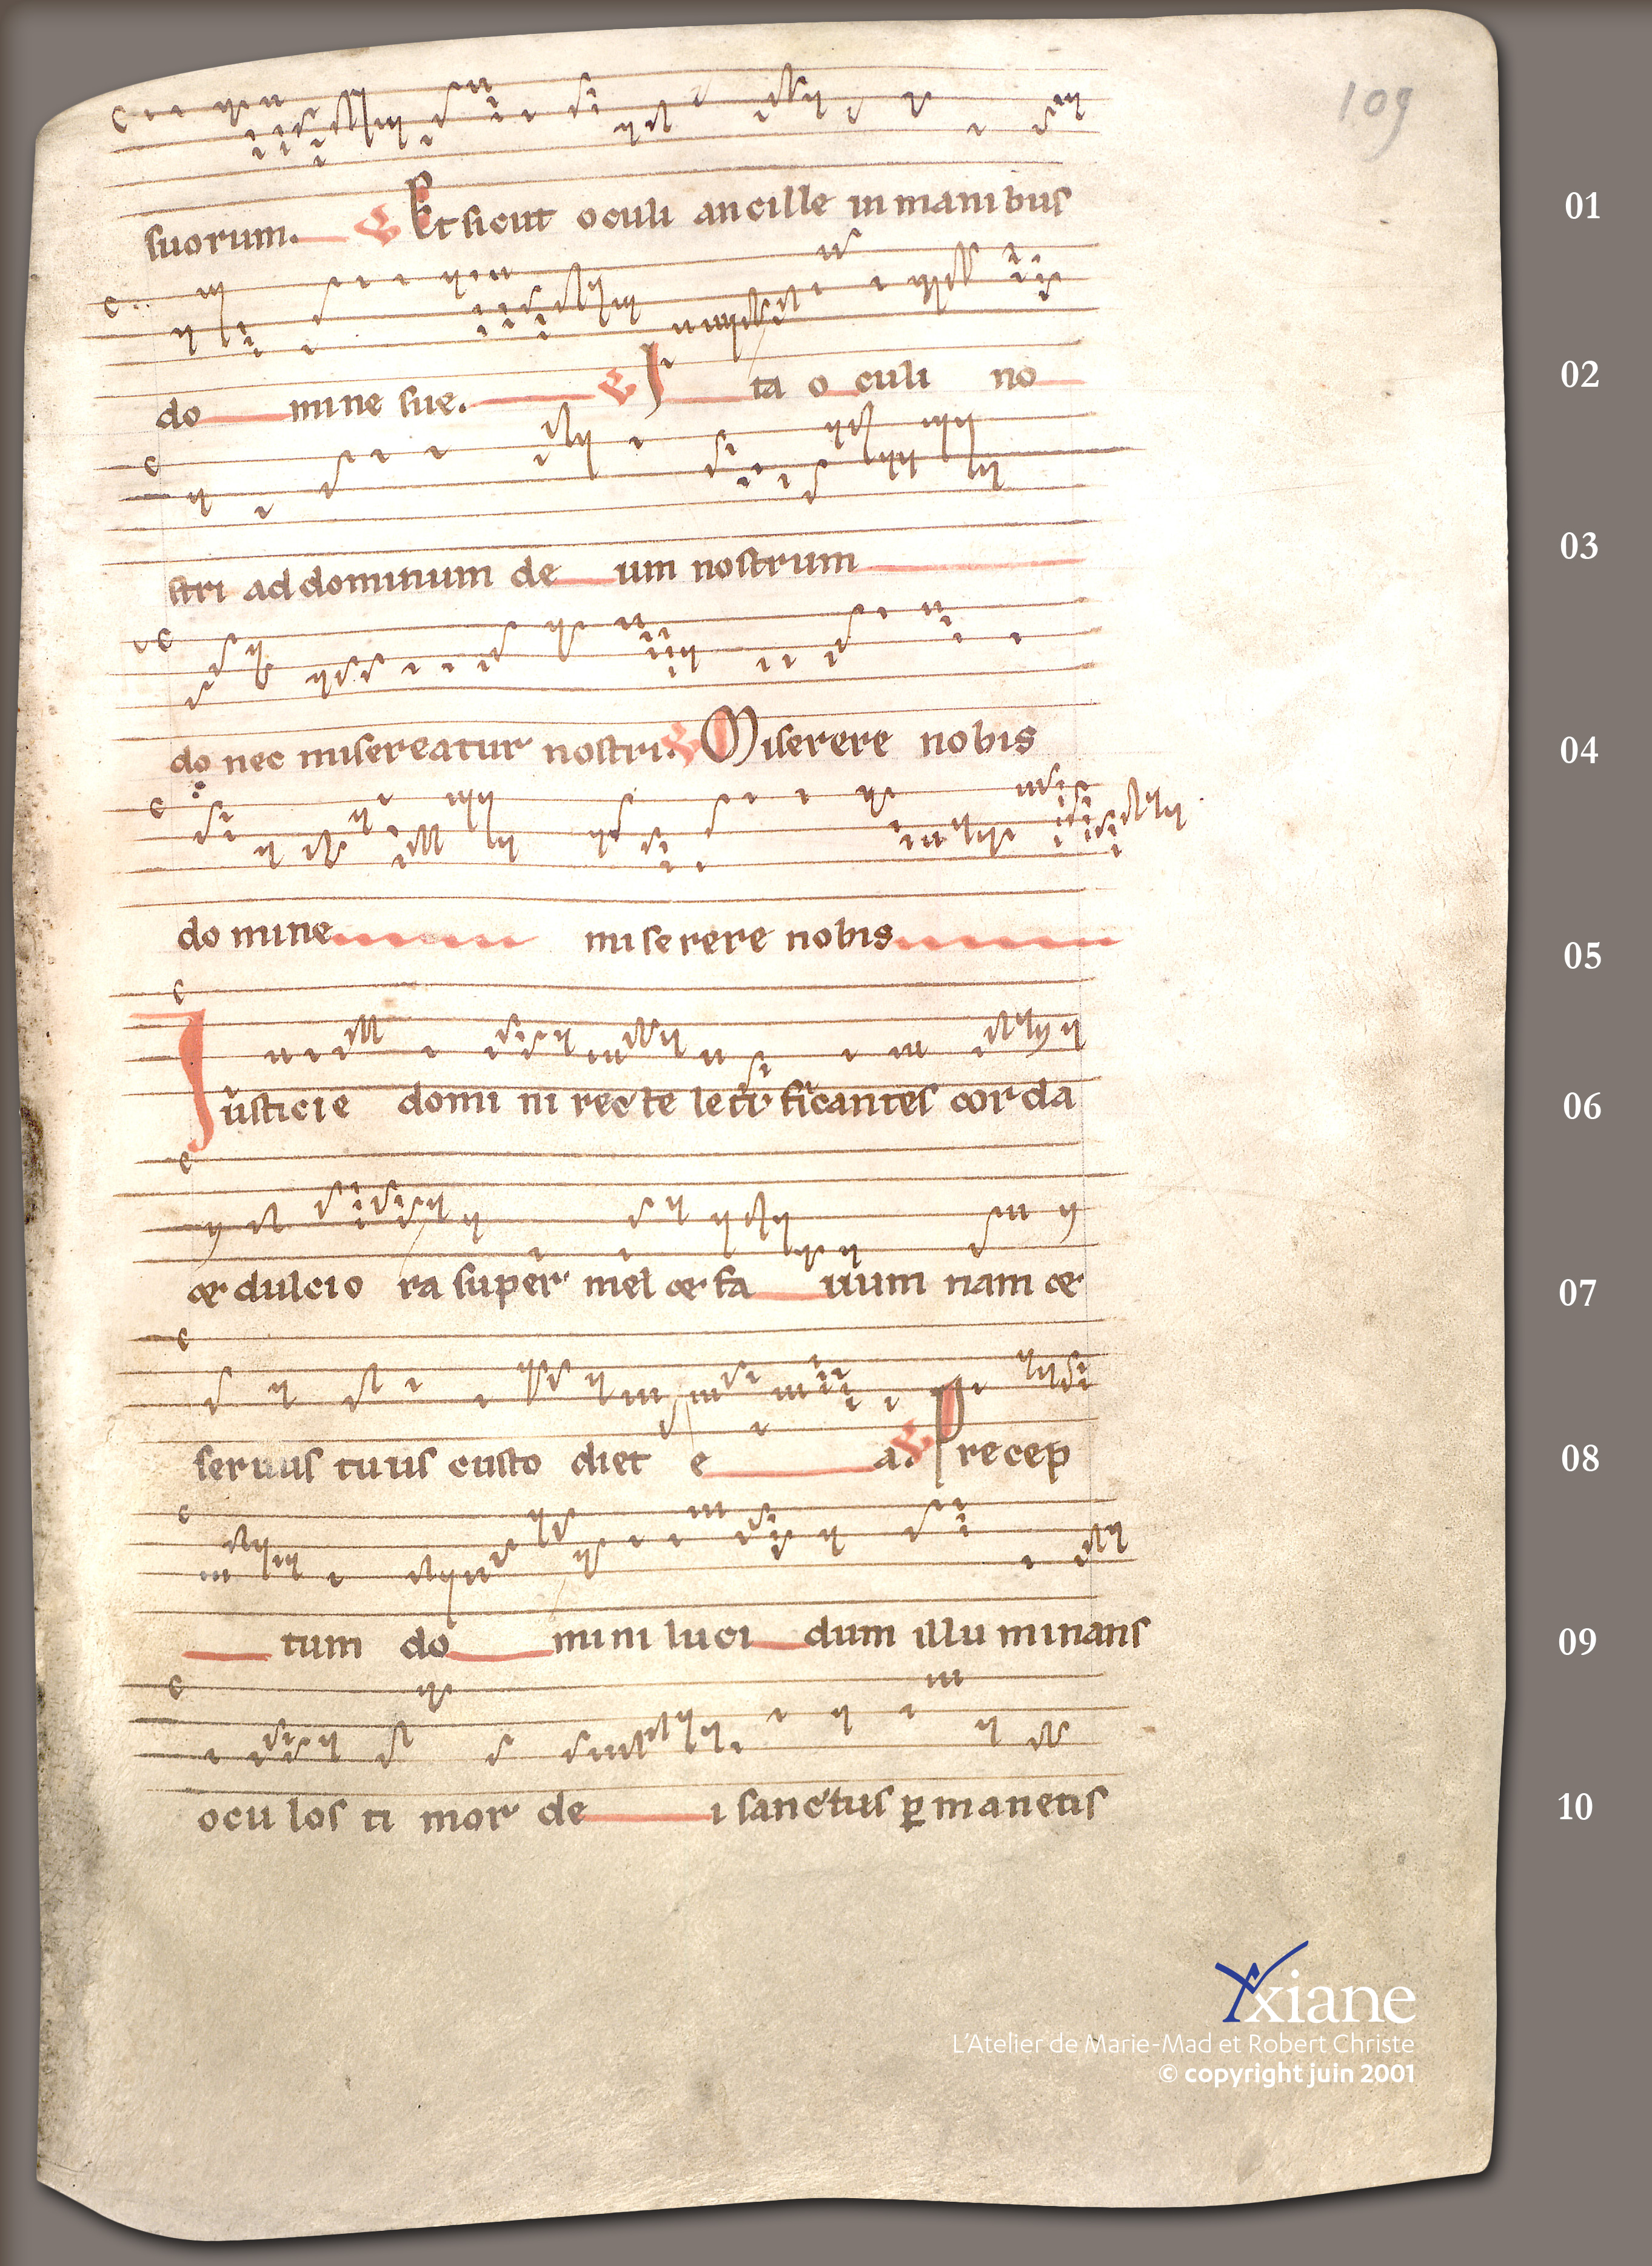 109
suorum. Et sicut oculi ancille in manibus 01
do mine sue. Ita oculi no 02
stri ad dominum de um nostrum 03
do nec misereatur nostri. Miserere nobis 04
do mine miserere nobis 05
Iusticie domi ni recte letificantes corda 06
et dulcio ra super mel et fa uum nam et 07
seruus tuus custo diet e a. Precep 08
tum do mini luci dum illu minans 09
ocu los ti mor de i sanctus p manetis 10
Yxiane
L'Atelier de Marie-Mad et Robert Christe
© copyright juin 2001